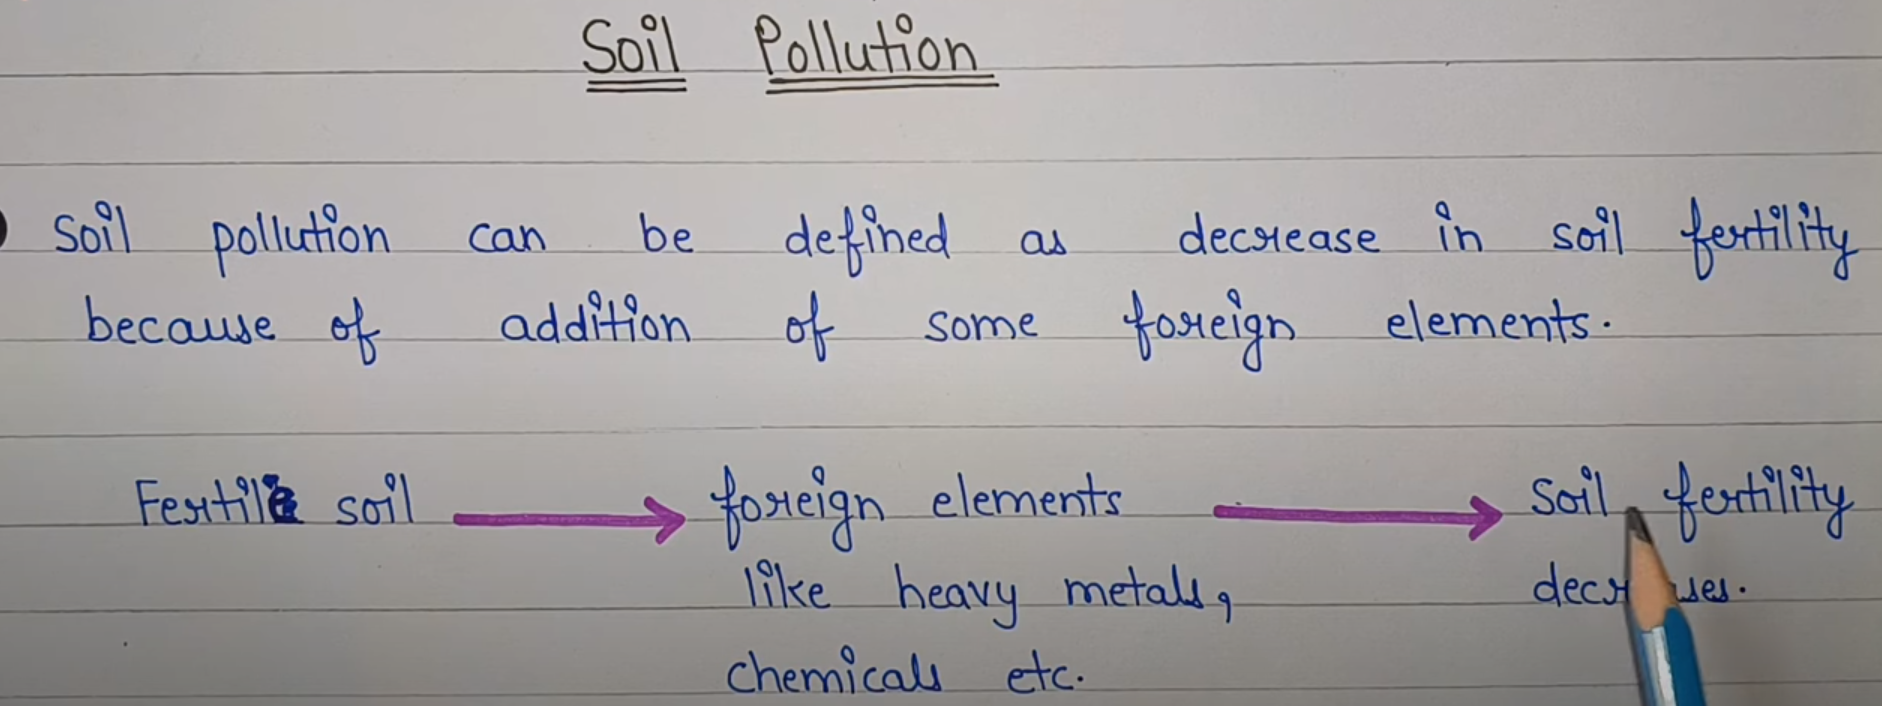 Soil Pollution
Soil pollution can be defined as decrease in soil fertility
because of addition of some foreign elements.
Fertile soil → foreign elements → Soil fertility
like heavy metals,
chemicals etc.